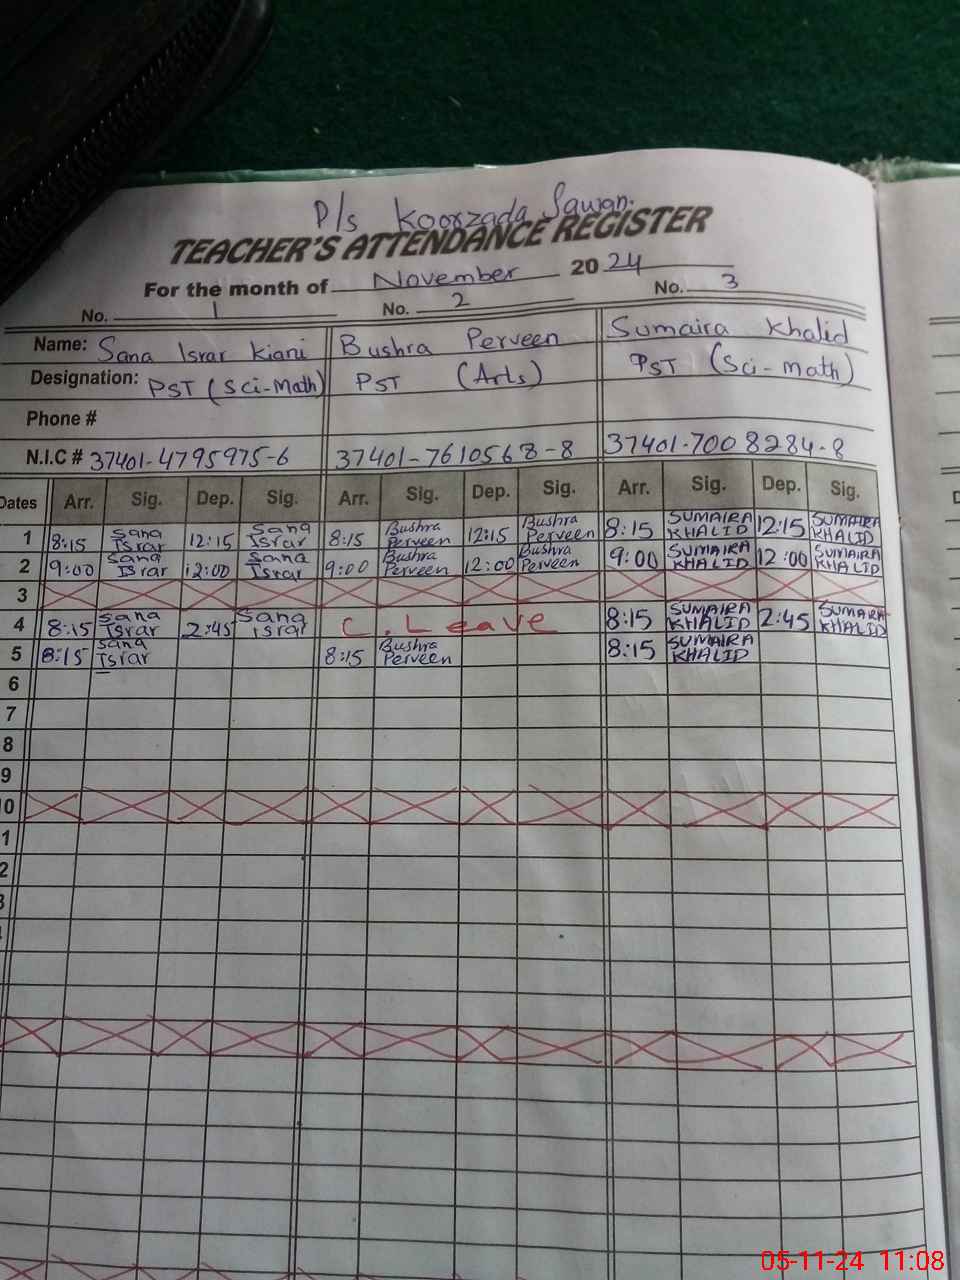 P/s Koorzada Sawan.
TEACHER'S ATTENDANCE REGISTER
For the month of November 2024
No. 1 No. 2 No. 3
Name: Sana Israr Kiani Bushra Perveen Sumaira Khalid
Designation: PST (Sci-Math) PST (Arts) PST (Sci-math)
Phone #
N.I.C # 37401-4795975-6 37401-7610568-8 37401-7008284-8
Dates Arr. Sig. Dep. Sig. Arr. Sig. Dep. Sig. Arr. Sig. Dep. Sig.
1 8:15 Sana Israr 12:15 Sana Israr 8:15 Bushra Perveen 12:15 Bushra Perveen 8:15 SUMAIRA KHALID 12:15 SUMAIRA KHALID
2 9:00 Sana Israr 12:00 Sana Israr 9:00 Bushra Perveen 12:00 Bushra Perveen 9:00 SUMAIRA KHALID 12:00 SUMAIRA KHALID
3
4 8:15 Sana Israr 2:45 Sana Israr C. Leave 8:15 SUMAIRA KHALID 2:45 SUMAIRA KHALID
5 8:15 Sana Israr 8:15 Bushra Perveen 8:15 SUMAIRA KHALID
6
7
8
9
0
1
2
05-11-24 11:08